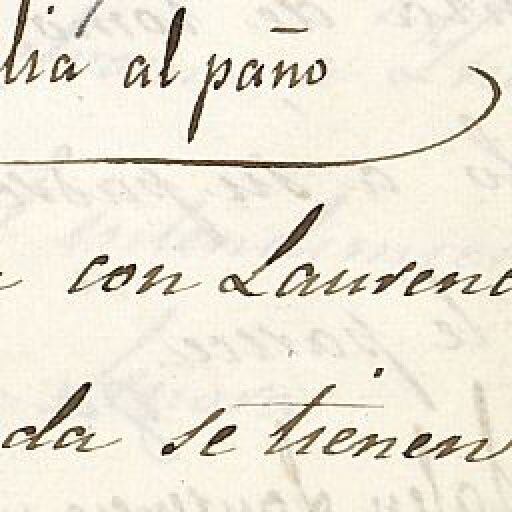 lia al paño
con Laurenc
da se tienen